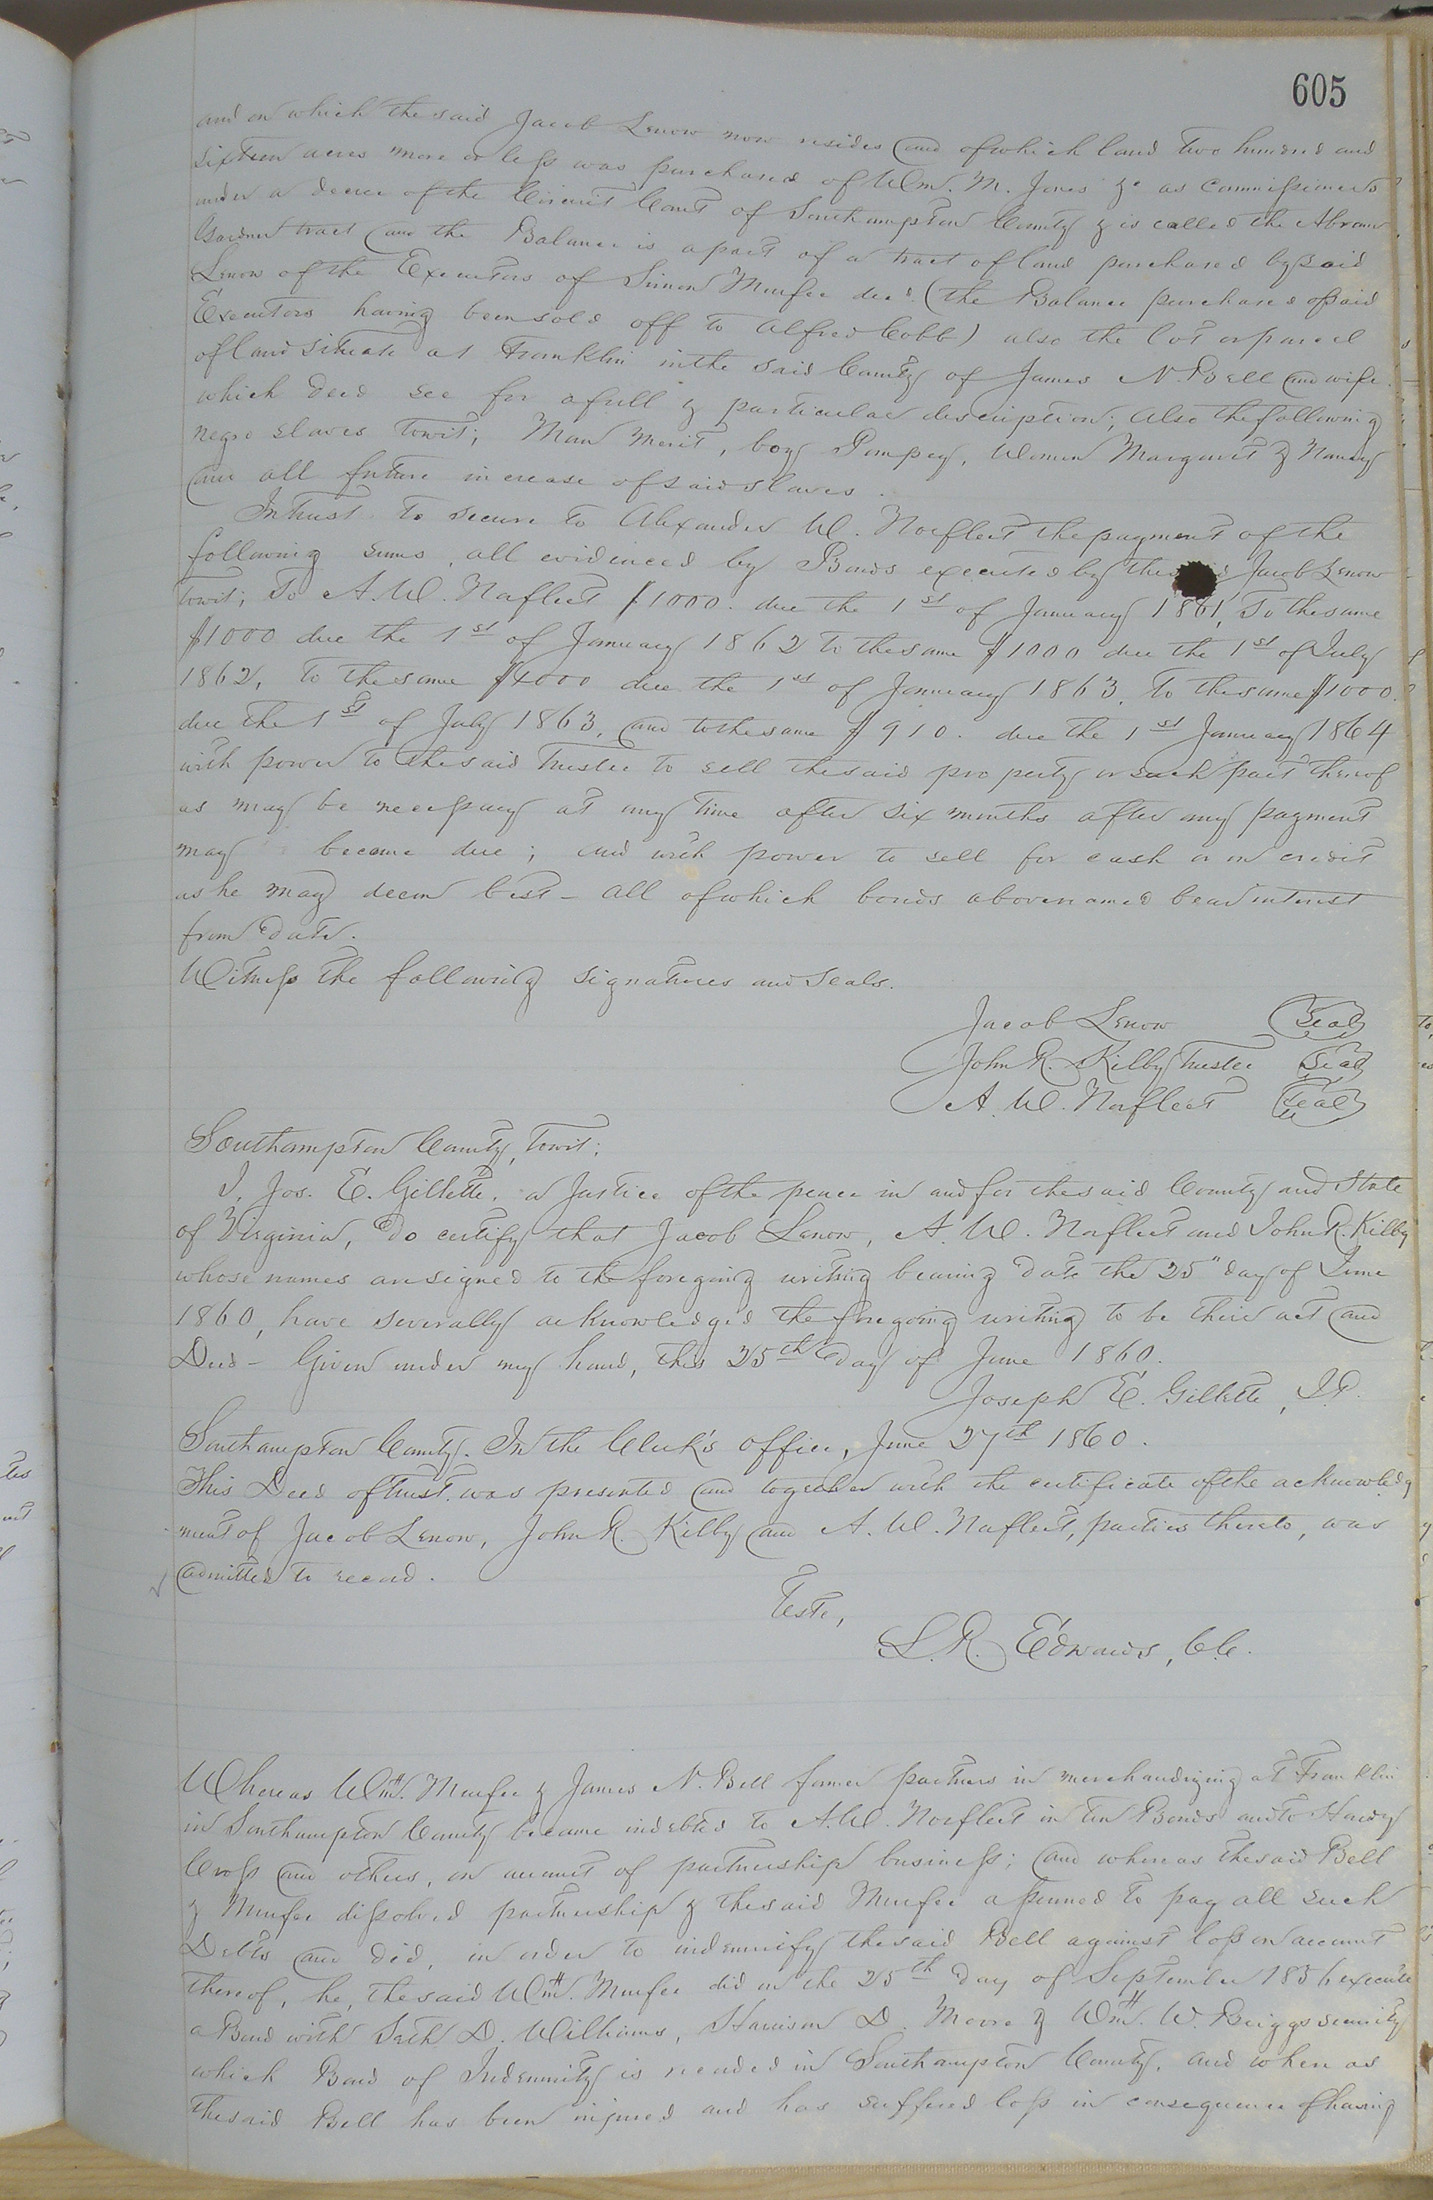 605
and on which the said Jacob Lenow now resides and of which land two hundred and
sixteen acres more or less was purchased of Wm. M. Jones &c as commissioners
under a decree of the Circuit Court of Southampton County & is called the Abram
Gardner tract and the Balance is a part of a tract of land purchased by said
Lenow of the Executors of Simon Murfee decd. (the Balance purchased of said
Executors having been sold off to Alfred Cobb) also the lot or parcel
of land situate at Franklin in the said County of James N. Bell and wife
which Deed see for a full & particular description; also the following
negro slaves towit; Man Merit, boy Pompey, Women Margaret & Nancy
and all future increase of said slaves.
In trust to secure to Alexander W. Norfleet the payment of the
following sums, all evidenced by Bonds executed by the Jacob Lenow
towit; To A. W. Norfleet $1000. due the 1st of January 1861, To the same
$1000 due the 1st of January 1862 to the same $1000 due the 1st of July
1862, to the same $1000 due the 1st of January 1863, to the same $1000.
due the 1st of July 1863, and to the same $910. due the 1st January 1864
with power to the said Trustee to sell the said property or such part thereof
as may be necessary at any time after six months after any payment
may become due; and with power to sell for cash or on credit
as he may deem best - all of which bonds above named bear interest
from date.
Witness the following signatures and seals.
Jacob Lenow Seal
John R. Kilby Trustee Seal
A. W. Norfleet Seal
Southampton County, towit;
I, Jos. E. Gillette, a Justice of the peace in and for the said County and State
of Virginia, do certify that Jacob Lenow, A. W. Norfleet and John R. Kilby
whose names are signed to the foregoing writing bearing date the 25" day of June
1860, have severally acknowledged the foregoing writing to be their act and
Deed - Given under my hand, this 25th day of June 1860.
Joseph E. Gillette, J.P.
Southampton County. In the Clerk's office, June 27th 1860.
This Deed of trust was presented and together with the certificate of the acknowledg
ment of Jacob Lenow, John R. Kilby and A. W. Norfleet, parties thereto, was
admitted to record.
Teste,
L. R. Edwards, C.C.
Whereas Wm. H. Murfee & James N. Bell former partners in merchandizing at Franklin
in Southampton County became indebted to A. W. Norfleet in two Bonds and to Hardy
Cross and others, on account of partnership business; and whereas the said Bell
& Murfee dissolved partnership & the said Murfee assumed to pay all such
Debts and did, in order to indemnify the said Bell against loss on account
thereof, he, the said Wm. H. Murfee did on the 25th day of September 1856 execute
a Bond with Seth D. Williams, Harrison D. Moore & Wm. W. Briggs security
which Bond of Indemnity is recorded in Southampton County, and where as
the said Bell has been injured and has suffered loss in consequence of having